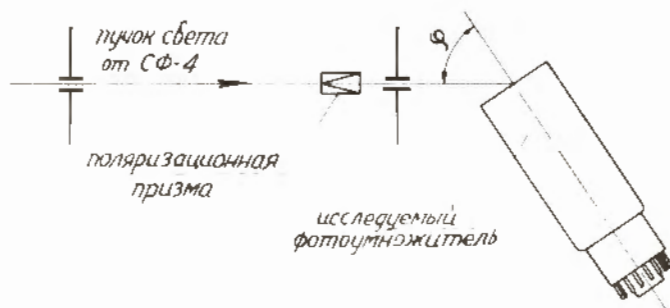 пучок света
от СФ-4
φ
поляризационная
призма
исследуемый
фотоумножитель